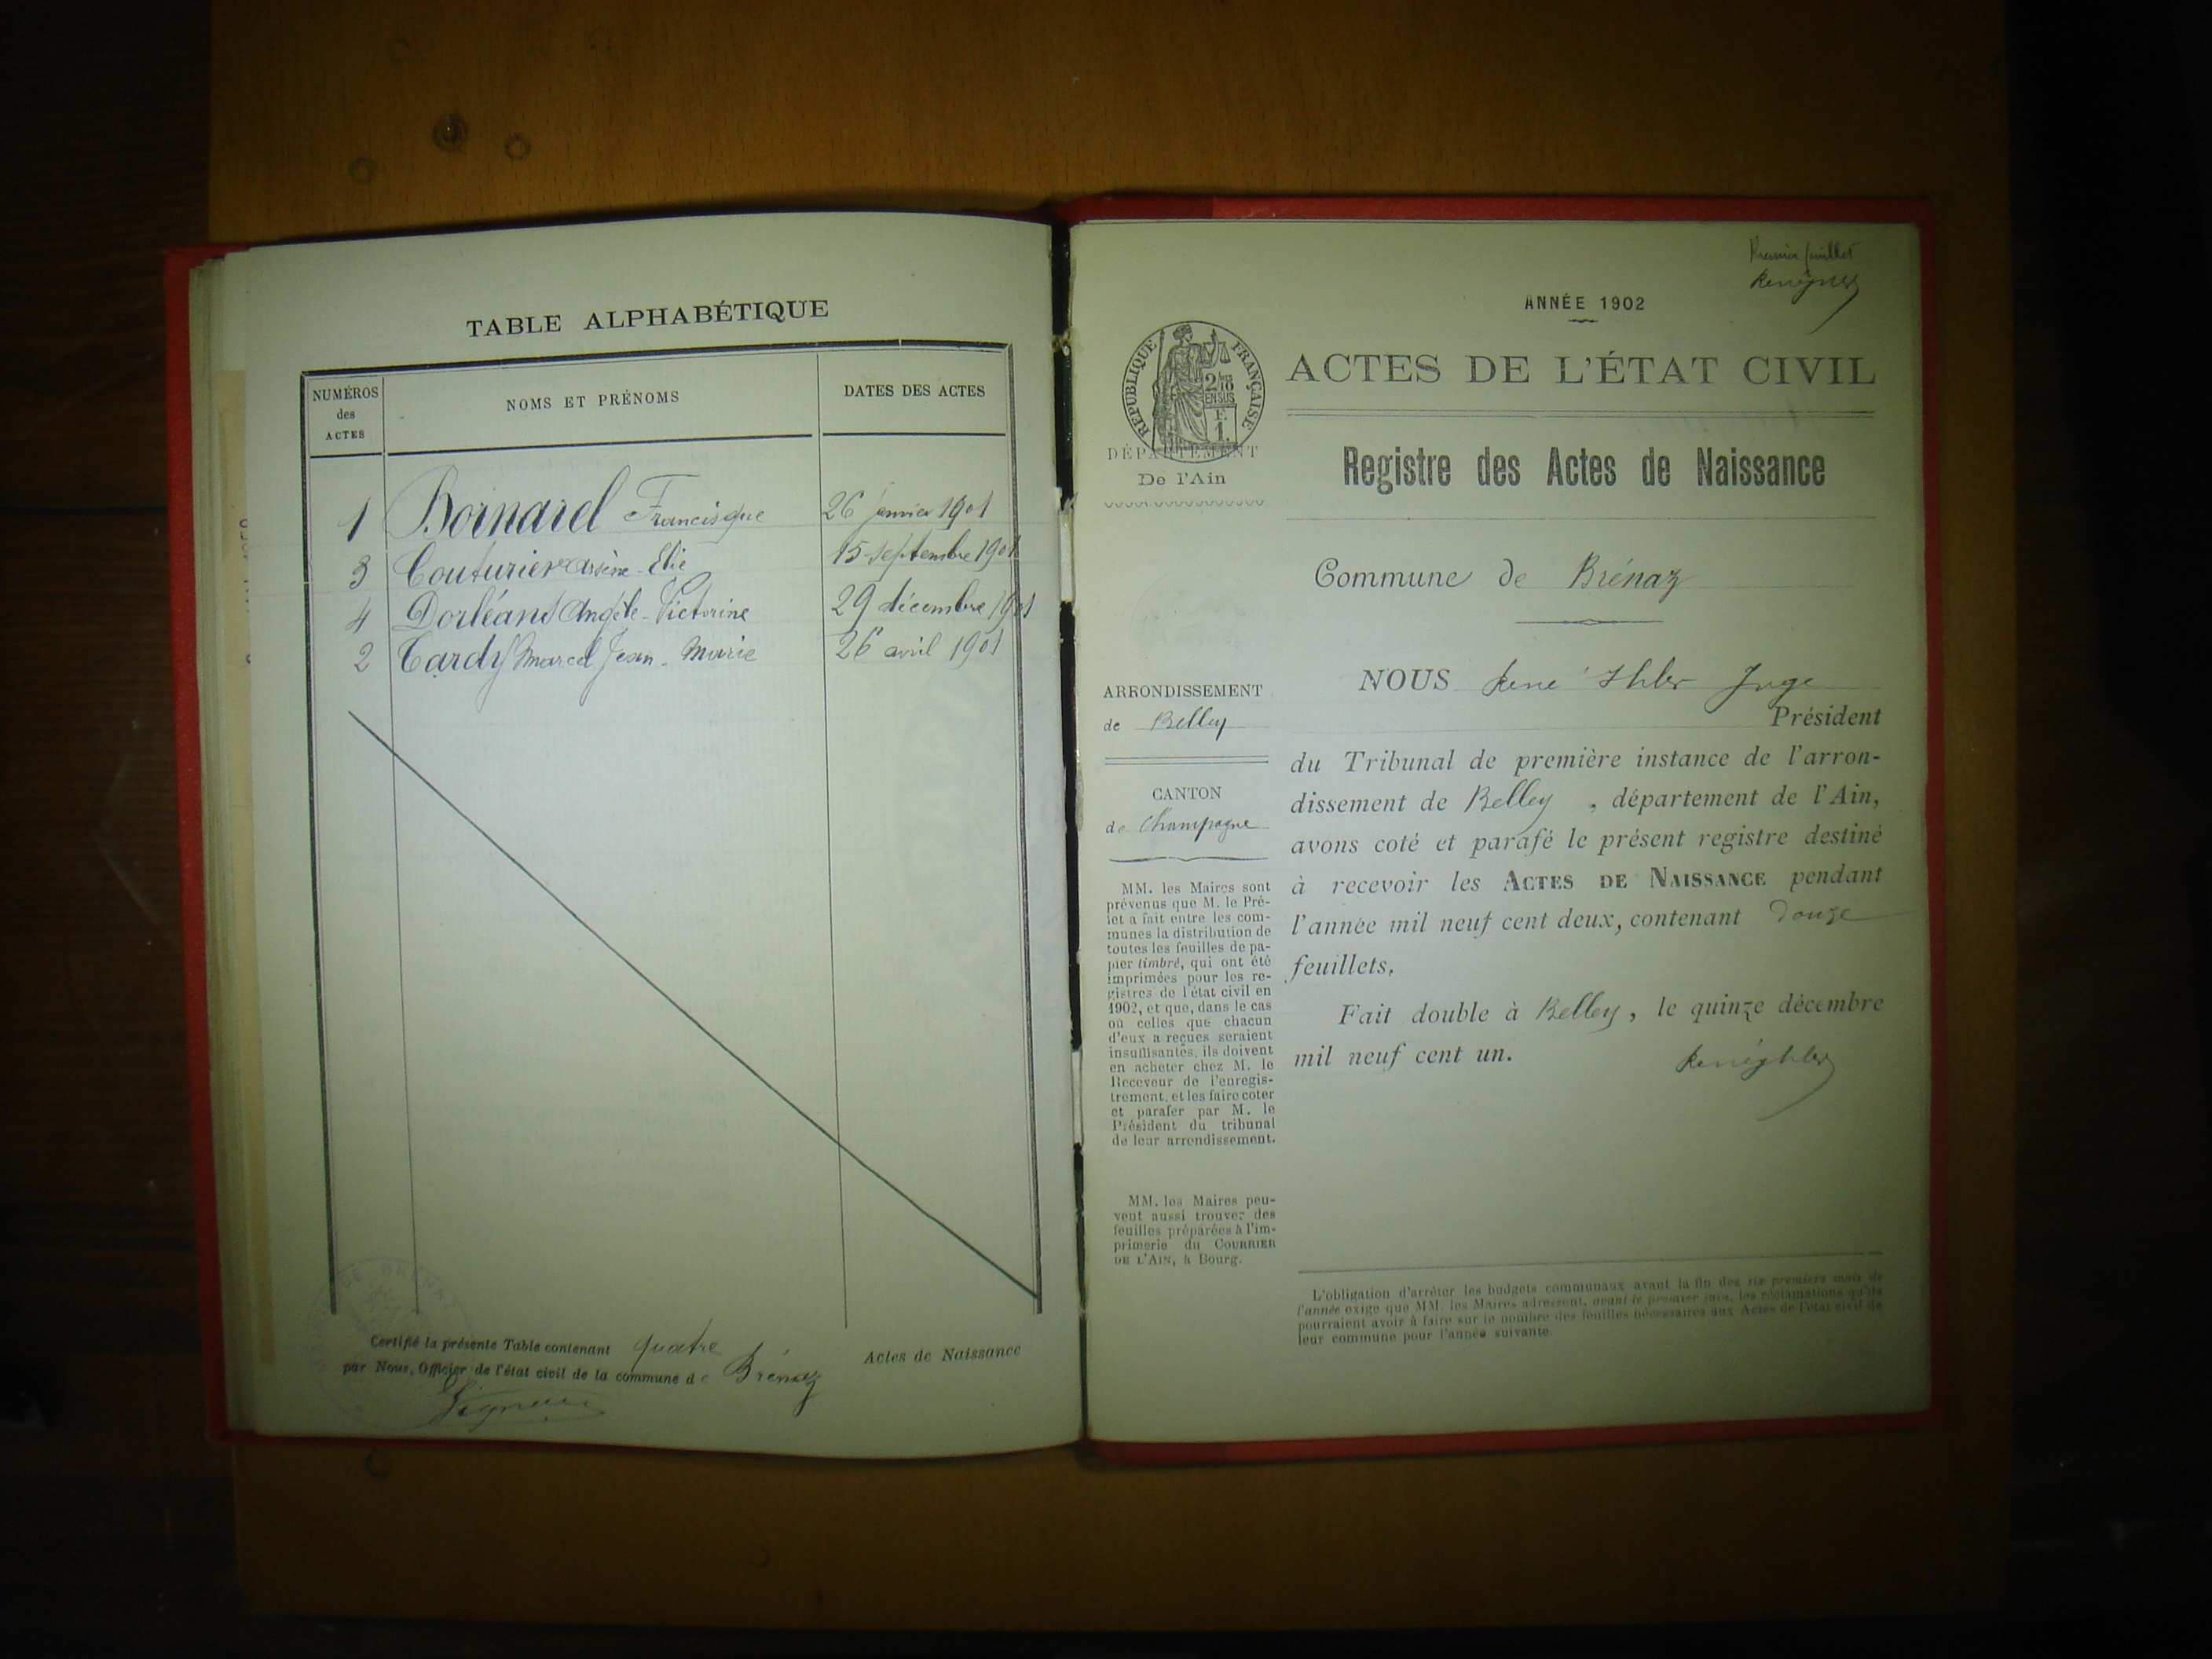 TABLE ALPHABÉTIQUE
NUMÉROS
des
ACTES
NOMS ET PRÉNOMS
DATES DES ACTES
1 Bornarel Francisque 26 janvier 1901
3 Couturier Arsène-Elie 15 septembre 1901
4 Dorléans Angèle-Victorine 29 décembre 1901
2 Tardy Marcel Jean-Marie 26 avril 1901
Certifié la présente Table contenant quatre Actes de Naissance
par Nous, Officier de l'état civil de la commune de Brénaz
Premier feuillet
ANNÉE 1902
RÉPUBLIQUE FRANÇAISE
DÉPARTEMENT
De l'Ain
ACTES DE L'ÉTAT CIVIL
Registre des Actes de Naissance
Commune de Brénaz
ARRONDISSEMENT
de Belley
CANTON
de Champagne
MM. les Maires sont
prévenus que M. le Pré-
fet a fait entre les com-
munes la distribution de
toutes les feuilles de pa-
pier timbré, qui ont été
imprimées pour les re-
gistres de l'état civil en
1902, et que, dans le cas
où celles que chacun
d'eux a reçues seraient
insuffisantes, ils doivent
en acheter chez M. le
Receveur de l'enregis-
trement, et les faire coter
et parafer par M. le
Président du tribunal
de leur arrondissement.
MM. les Maires peu-
vent aussi trouver des
feuilles préparées à l'im-
primerie du COURRIER
DE L'AIN, à Bourg.
NOUS René Ihler Juge
Président
du Tribunal de première instance de l'arron-
dissement de Belley, département de l'Ain,
avons coté et parafé le présent registre destiné
à recevoir les ACTES DE NAISSANCE pendant
l'année mil neuf cent deux, contenant Douze
feuillets.
Fait double à Belley, le quinze décembre
mil neuf cent un.
RenéIhler
L'obligation d'arrêter les budgets communaux avant la fin des six premiers mois de
l'année exige que MM. les Maires adressent, avant le premier juin, les réclamations qu'ils
pourraient avoir à faire sur le nombre des feuilles nécessaires aux Actes de l'état civil de
leur commune pour l'année suivante.